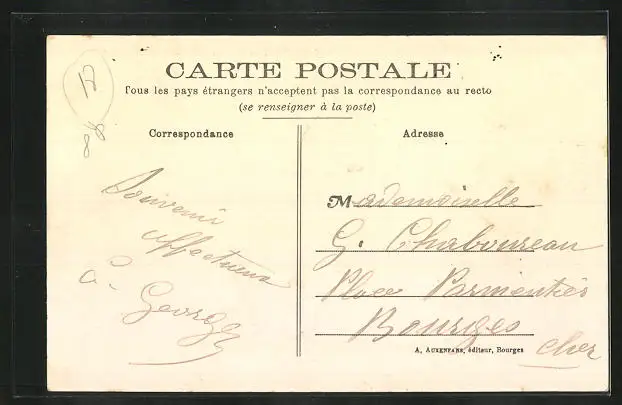 CARTE POSTALE
Tous les pays étrangers n'acceptent pas la correspondance au recto
(se renseigner à la poste)
Correspondance
Souvenir
affectueux
Georges
Adresse
Mademoiselle
G. Chaboureau
Place Parmentier
Bourges
Cher
A. AUXENFANS, éditeur, Bourges